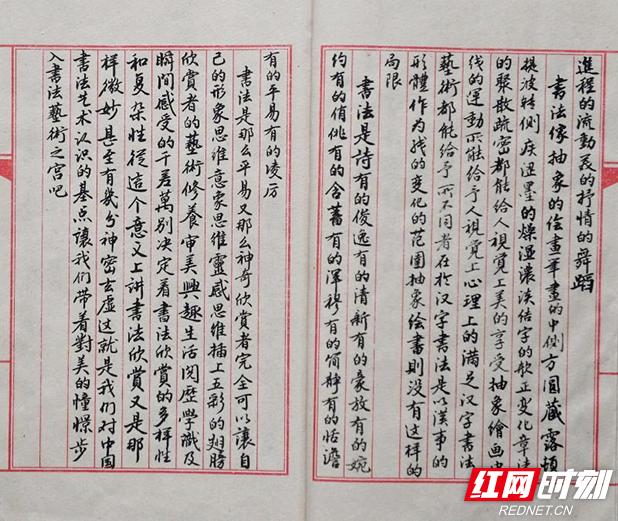 進程的流動美的抒情的舞蹈
書法像抽象的绘畫筆畫的中侧方圆藏露頓
提波转侧疾涩墨的燥湿濃淡结字的欹正变化章法
的聚散疏密都能给人視覺上美的享受抽象绘画中
线的運動所能给予人視覺上心理上的满足汉字書法
藝術都能给予所不同者在於汉字書法是以漢字的
形體作为线的变化的范围抽象绘畫則没有这样的
局限
書法是詩有的俊逸有的清新有的豪放有的婉
约有的俏佻有的含蓄有的浑穆有的简静有的恬澹
有的平易有的凌厉
書法是那么平易又那么神奇欣赏者完全可以讓自
己的形象思维意象思维靈感思维插上五彩的翅膀
欣赏者的藝術修養審美興趣生活阅歷學識及
瞬间感受的千差萬别决定着書法欣赏的多样性
和复杂性從這个意义上讲書法欣赏又是那
样微妙甚至有幾分神密玄虚这就是我们对中國
書法艺术认识的基点讓我们带着對美的憧憬步
入書法藝術之宫吧
红网时刻
REDNET.CN